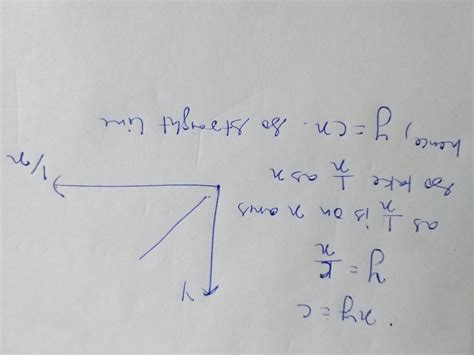 xy = c
y = c/x
as 1/x is on x axis
so take 1/x as x
hence, y = cx. so straight line
Y
1/x